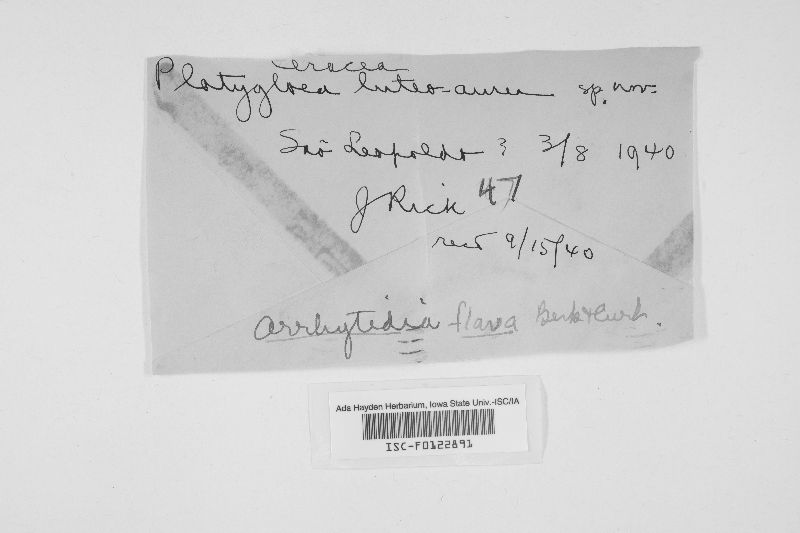 eracea
Platygloea luteo-aurea sp. nov.
São Leopoldo ? 3/8 1940
J Rick 47
recd 9/15/40
Arrhytidia flava Berk & Curt.
Ada Hayden Herbarium, Iowa State Univ.-ISC/IA
ISC-F0122891